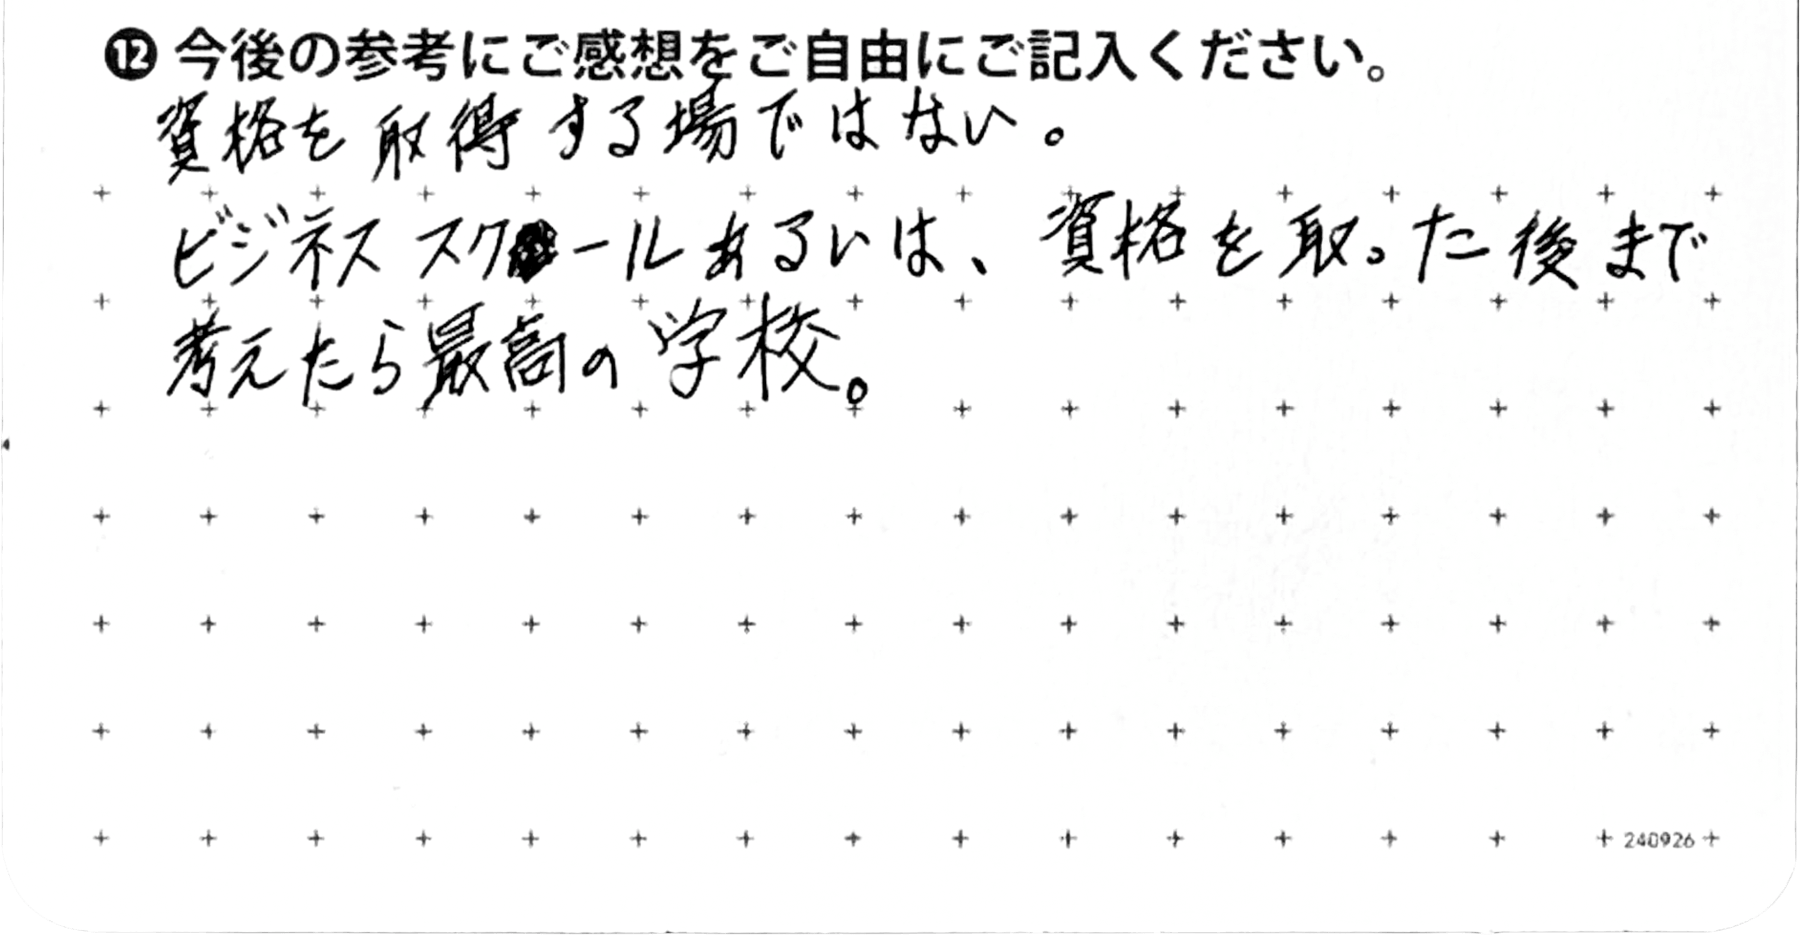 ⓬ 今後の参考にご感想をご自由にご記入ください。
資格を取得する場ではない。
ビジネススクール あるいは、資格を取った後まで
考えたら最高の学校。
240926